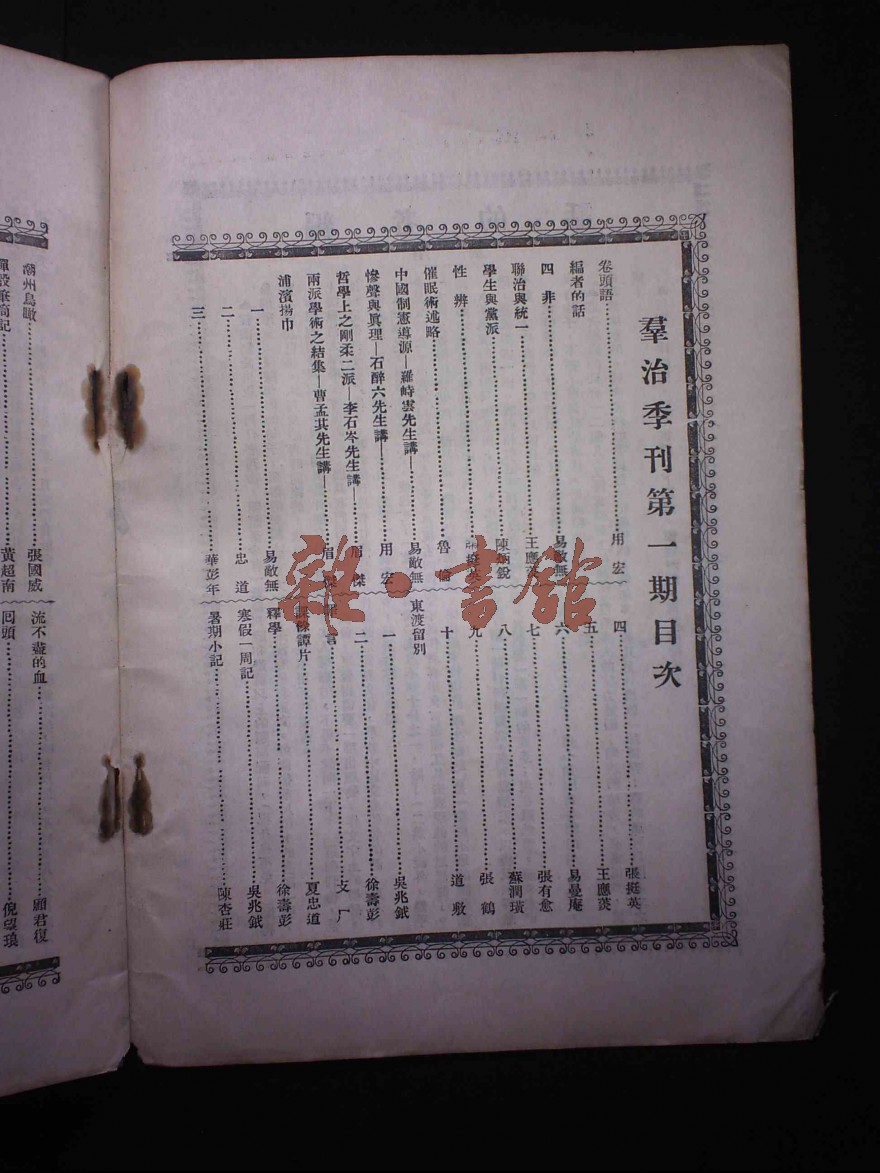 羣治季刊第一期目次
卷頭語 用宏
編者的話
四非 易敵無
聯治與統一 王應
學生與黨派 陳炳銳
性辨
催眠術述略 魯
中國制憲導源—羅峙雲先生講— 易敵無
慘聲與眞理—石醉六先生講— 用宏
哲學上之剛柔二派—李石岑先生講— 眉傑
兩派學術之結集—曹孟其先生講— 眉傑
浦濱揚巾
一 易敵無
二 忠道
三 華彭年
四 張挺英
五 王應萸
六 易曼庵
七 張有愈
八 蘇潤璜
九 張鶴
十 道敷
東渡留別
一 吳兆鉽
二 徐壽彭
言 支厂
譚片 夏忠道
釋學 徐壽彭
寒假一周記 吳兆鉽
暑期小記 陳杏莊
潮州鳥瞰 張國威
記 黃超南
流不盡的血 顧君復
囘頭 倪望
雜·書館